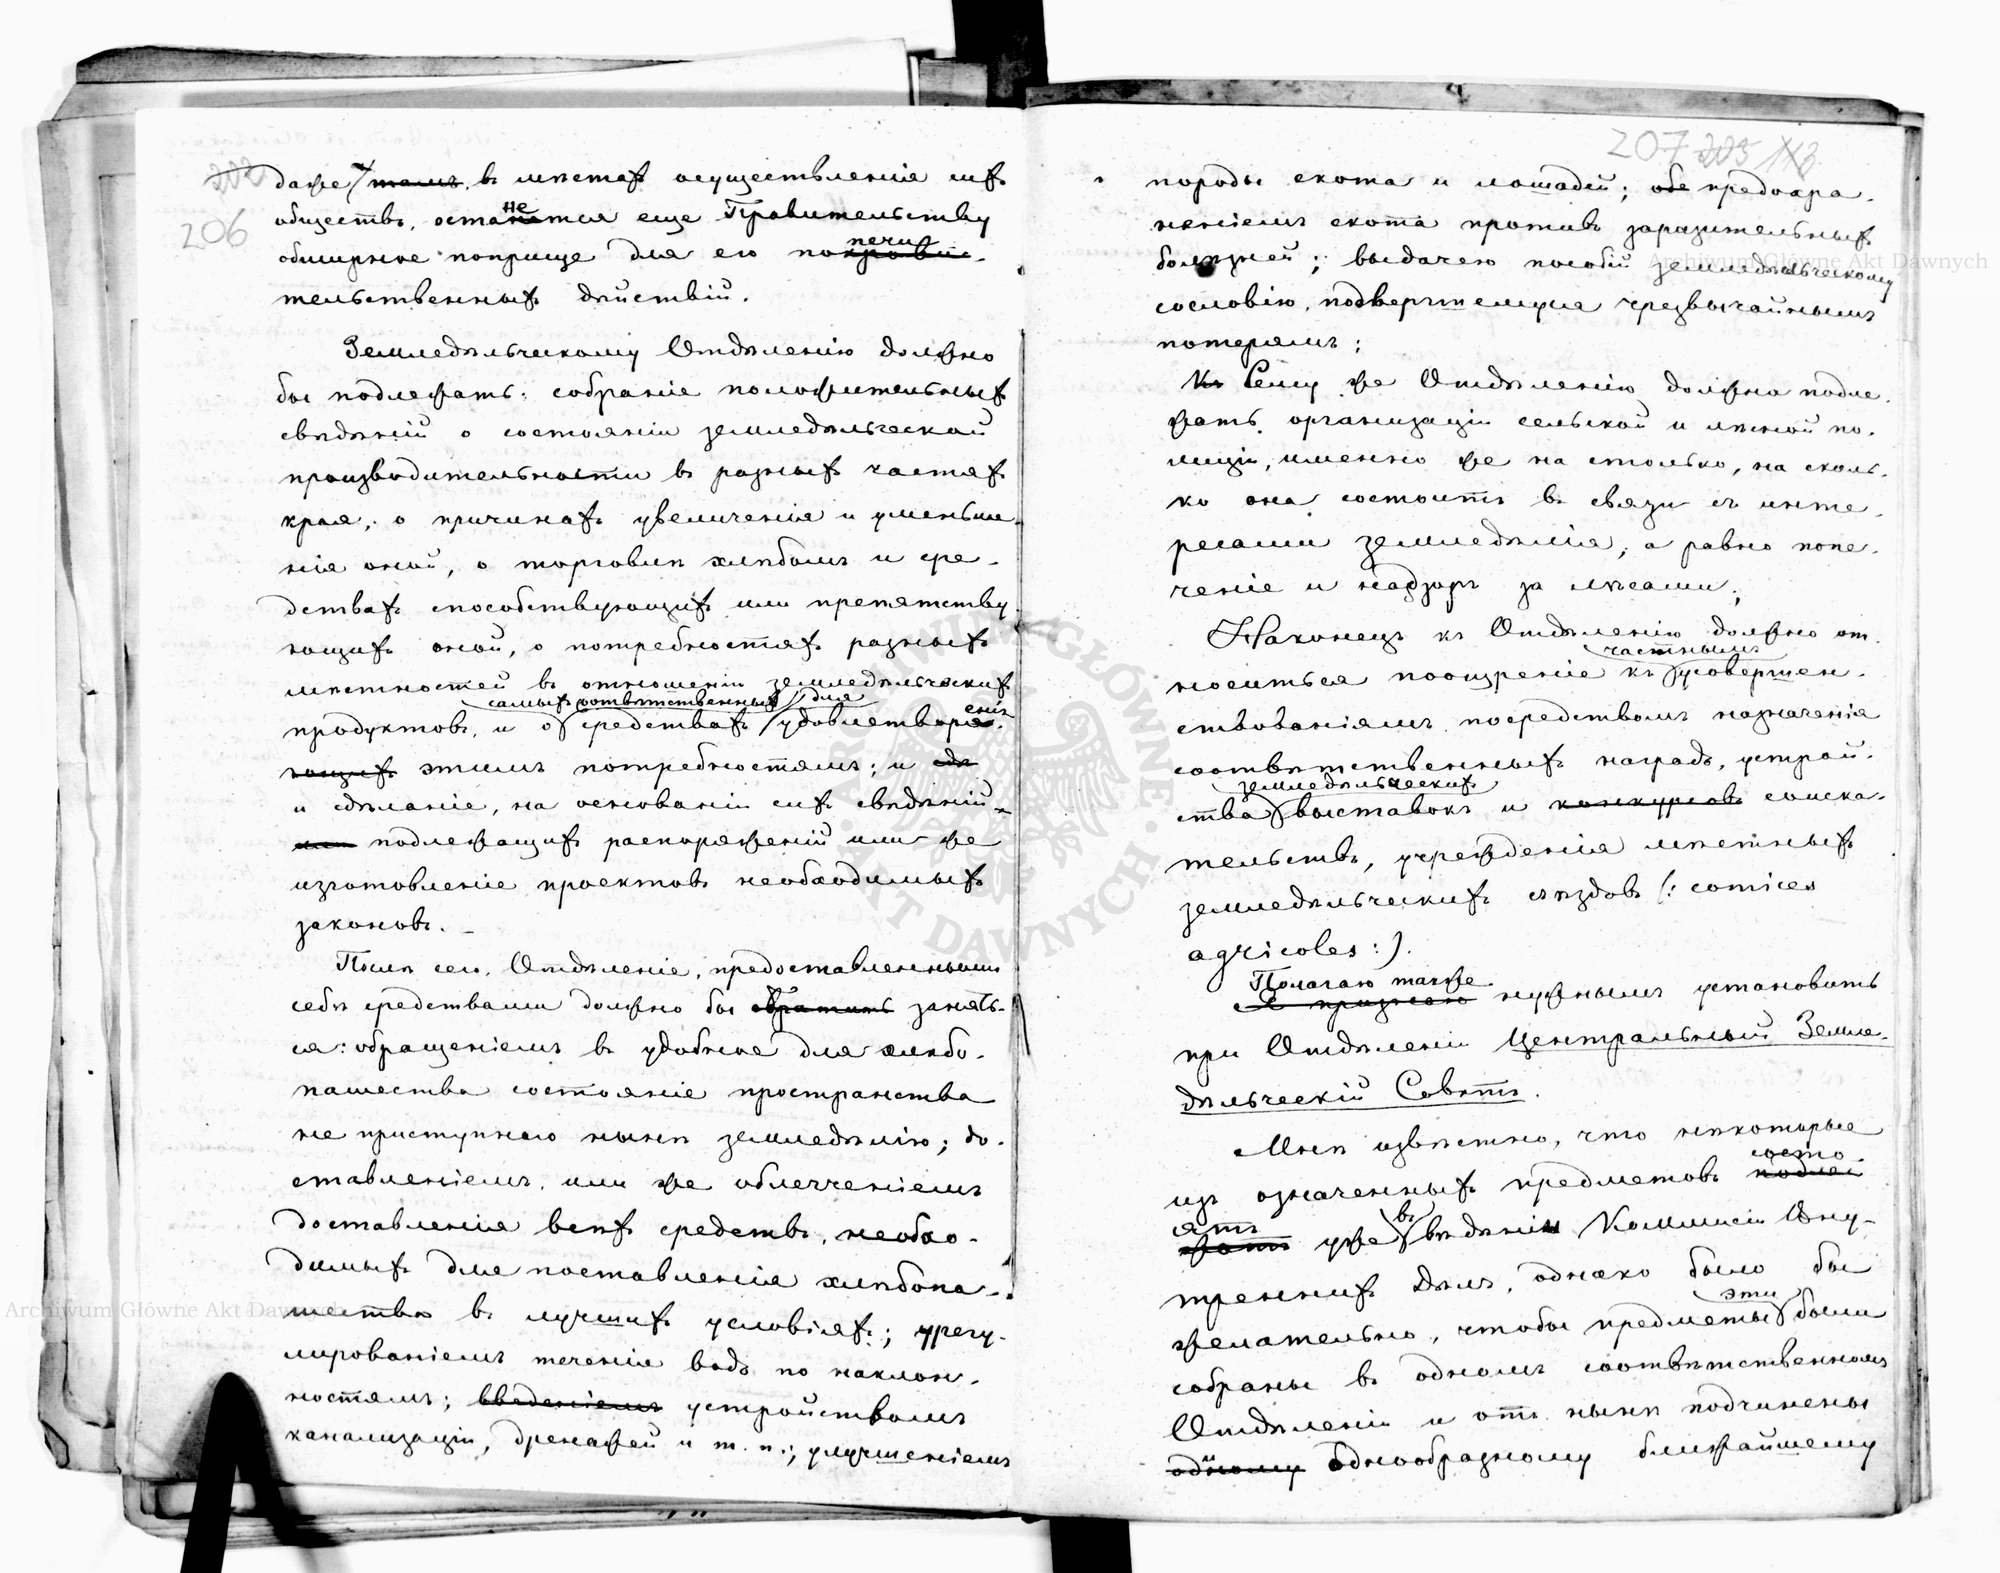 202
206
даже тамъ, въ мѣстахъ осуществленія сихъ
обществъ, останется еще Правительству
не
обширное поприще для его покровис-
печи
тельственныхъ дѣйствій.
Земледѣльческому Отдѣленію должно
бы подлежать: собраніе положительныхъ
свѣдѣній о состояніи земледѣльческой
производительности въ разныхъ частяхъ
края, о причинахъ увеличенія и уменьше-
нія оной, о торговлѣ хлѣбомъ и сре-
дствахъ способствующихъ или препятству
ющихъ оной, о потребностяхъ разныхъ
мѣстностей въ отношеніи земледѣльческихъ
самыхъ соотвѣтственныхъ для
продуктовъ, и о средствахъ удовлетворя-
енія
ющихъ этимъ потребностямъ; и сдѣ
и сдѣланіе, на основаніи сихъ свѣдѣній
или подлежащихъ распоряженій или же
изготовленіе проектовъ необходимыхъ
законовъ. _
Послѣ сего, Отдѣленіе, предоставленными
себѣ средствами должно бы обратить занять-
ся: обращеніемъ въ удобное для хлѣбо-
пашества состояніе пространства
не приступнаго нынѣ земледѣлію; до-
ставленіемъ, или же облегченіемъ
доставленія всѣхъ средствъ, необхо-
димыхъ для поставленія хлѣбопа-
шество въ лучшихъ условіяхъ; урегу-
лированіемъ теченія водъ по наклон-
ностямъ; введеніемъ устройствомъ
канализаціи, дренажей и т. п.; улучшеніемъ
207 203 113
породы скота и лошадей; обе предохра-
неніемъ скота противъ заразительныхъ
болѣзней; выдачею пособій земледѣльческому
сословію, подвергшемуся чрезвычайнымъ
потерямъ;
Къ Сему же Отдѣленію должно подле-
жать организаціи сельской и лѣсной по-
лиціи, именно же на столько, на сколь-
ко она состоитъ въ связи съ инте-
ресами земледѣлія, а равно попе-
ченіе и надзоръ за лѣсами;
Наконецъ къ Отдѣленію должно от-
частнымъ
носиться поощреніе къ усовершен-
ствованіямъ посредствомъ назначенія
соотвѣтственныхъ наградъ, устрой-
земледѣльческихъ
ства выставокъ и конкурсовъ соиска-
тельствъ, учрежденія мѣстныхъ
земледѣльческихъ съѣздовъ (: comices
agricoles :).
Полагаю также
Я признаю нужнымъ установить
при Отдѣленіи Центральный Земле-
дѣльческій Совѣтъ.
Мнѣ извѣстно, что нѣкоторые
состо-
изъ означенныхъ предметовъ подле
ятъ въ
жатъ уже вѣдѣніи Коммисіи Вну-
треннихъ Дѣлъ, однако было бы
эти
желательно, чтобы предметы были
собраны въ одномъ соотвѣтственномъ
Отдѣленіи и отъ нынѣ подчинены
одному однообразному ближайшему
Archiwum Główne Akt Dawnych
Archiwum Główne Akt Dawnych
ARCHIWUM GŁÓWNE AKT DAWNYCH